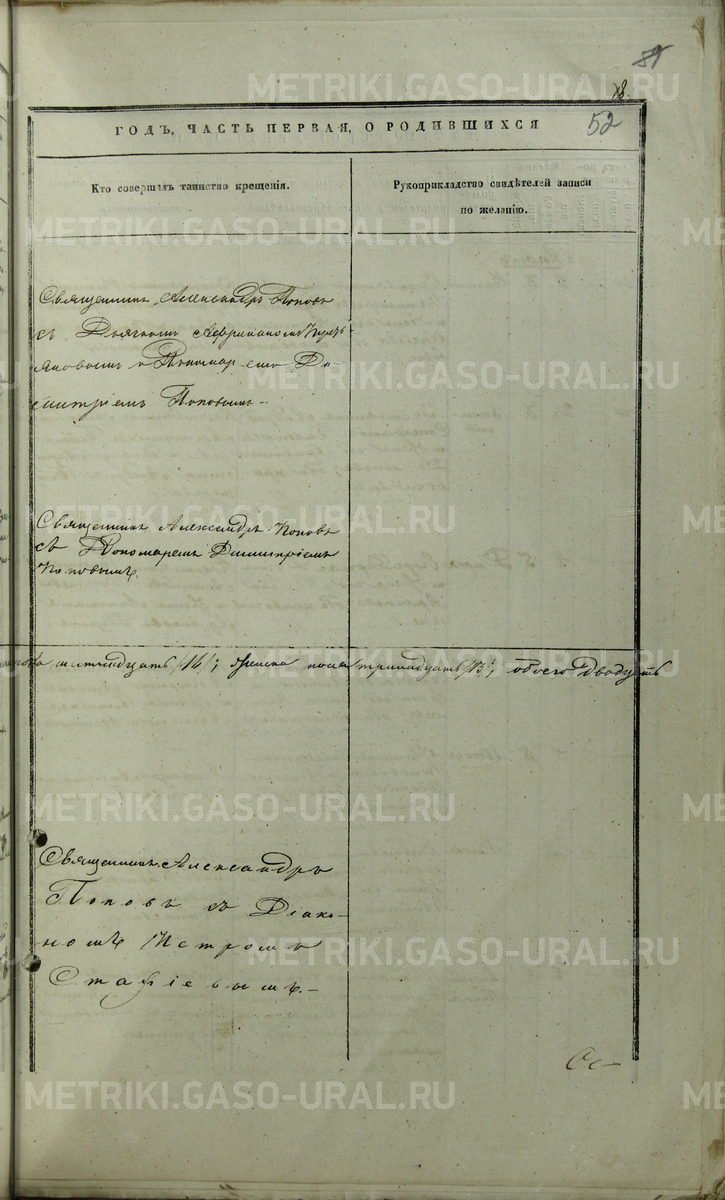 18.
52
ГОДЪ, ЧАСТЬ ПЕРВАЯ, О РОДИВШИХСЯ
Кто совершалъ таинство крещенія.
Рукоприкладство свидѣтелей записи
по желанію.
Священникъ Александръ Поповъ
съ Дьячкомъ Африканомъ
и Пономаремъ Ди-
митріемъ Поповымъ.
Священникъ Александръ Поповъ
съ Пономаремъ Димитріемъ
Поповымъ.
шестнадцать /16/; женска пола тринадцать /13/, обоего двадцать
Священникъ Александръ
Поповъ съ Діако-
номъ Петромъ
METRIKI.GASO-URAL.RU